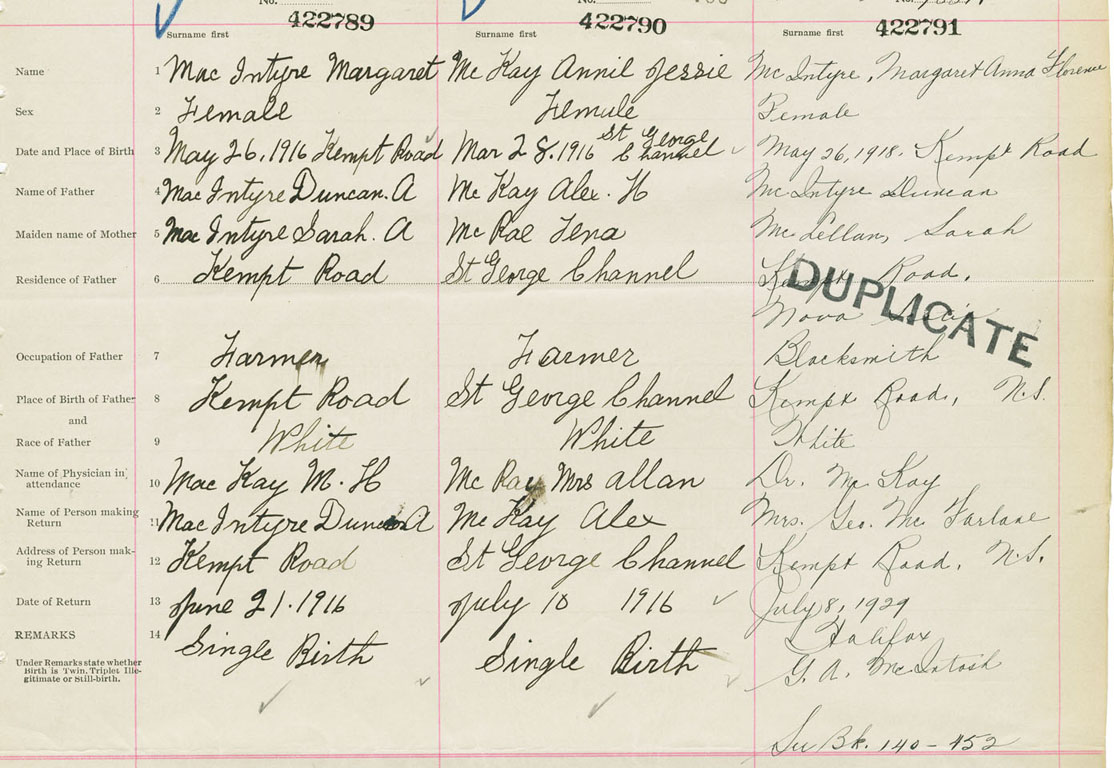 No. No. No.
422789 422790 422791
Surname first Surname first Surname first
Name 1 Mac Intyre Margaret Mc Kay Annil Jessie Mc Intyre, Margaret Anna Florence
Sex 2 Female Female Female
Date and Place of Birth 3 May 26, 1916 Kempt Road Mar 28. 1916 St George Channel May 26, 1918. Kempt Road
Name of Father 4 Mac Intyre Duncan. A Mc Kay Alex. H Mc Intyre Duncan
Maiden name of Mother 5 Mac Intyre Sarah. A Mc Rae Tena Mc Lellan, Sarah
Residence of Father 6 Kempt Road St George Channel Kempt Road,
Nova Scotia
DUPLICATE
Occupation of Father 7 Farmer Farmer Blacksmith
Place of Birth of Father 8 Kempt Road St George Channel Kempt Road, N.S.
and
Race of Father 9 White White White
Name of Physician in attendance 10 Mac Kay M. H Mc Rae Mrs allan Dr. Mc Kay
Name of Person making Return 11 Mac Intyre Duncan A Mc Kay Alex Mrs. Geo. Mc Farlane
Address of Person making Return 12 Kempt Road St George Channel Kempt Road, N.S.
Date of Return 13 June 21. 1916 July 10 1916 July 8, 1929
REMARKS 14 Single Birth Single Birth Halifax
Under Remarks state whether Birth is Twin, Triplet, Illegitimate or Still-birth. G. A. McIntosh
See Bk. 140 - 452